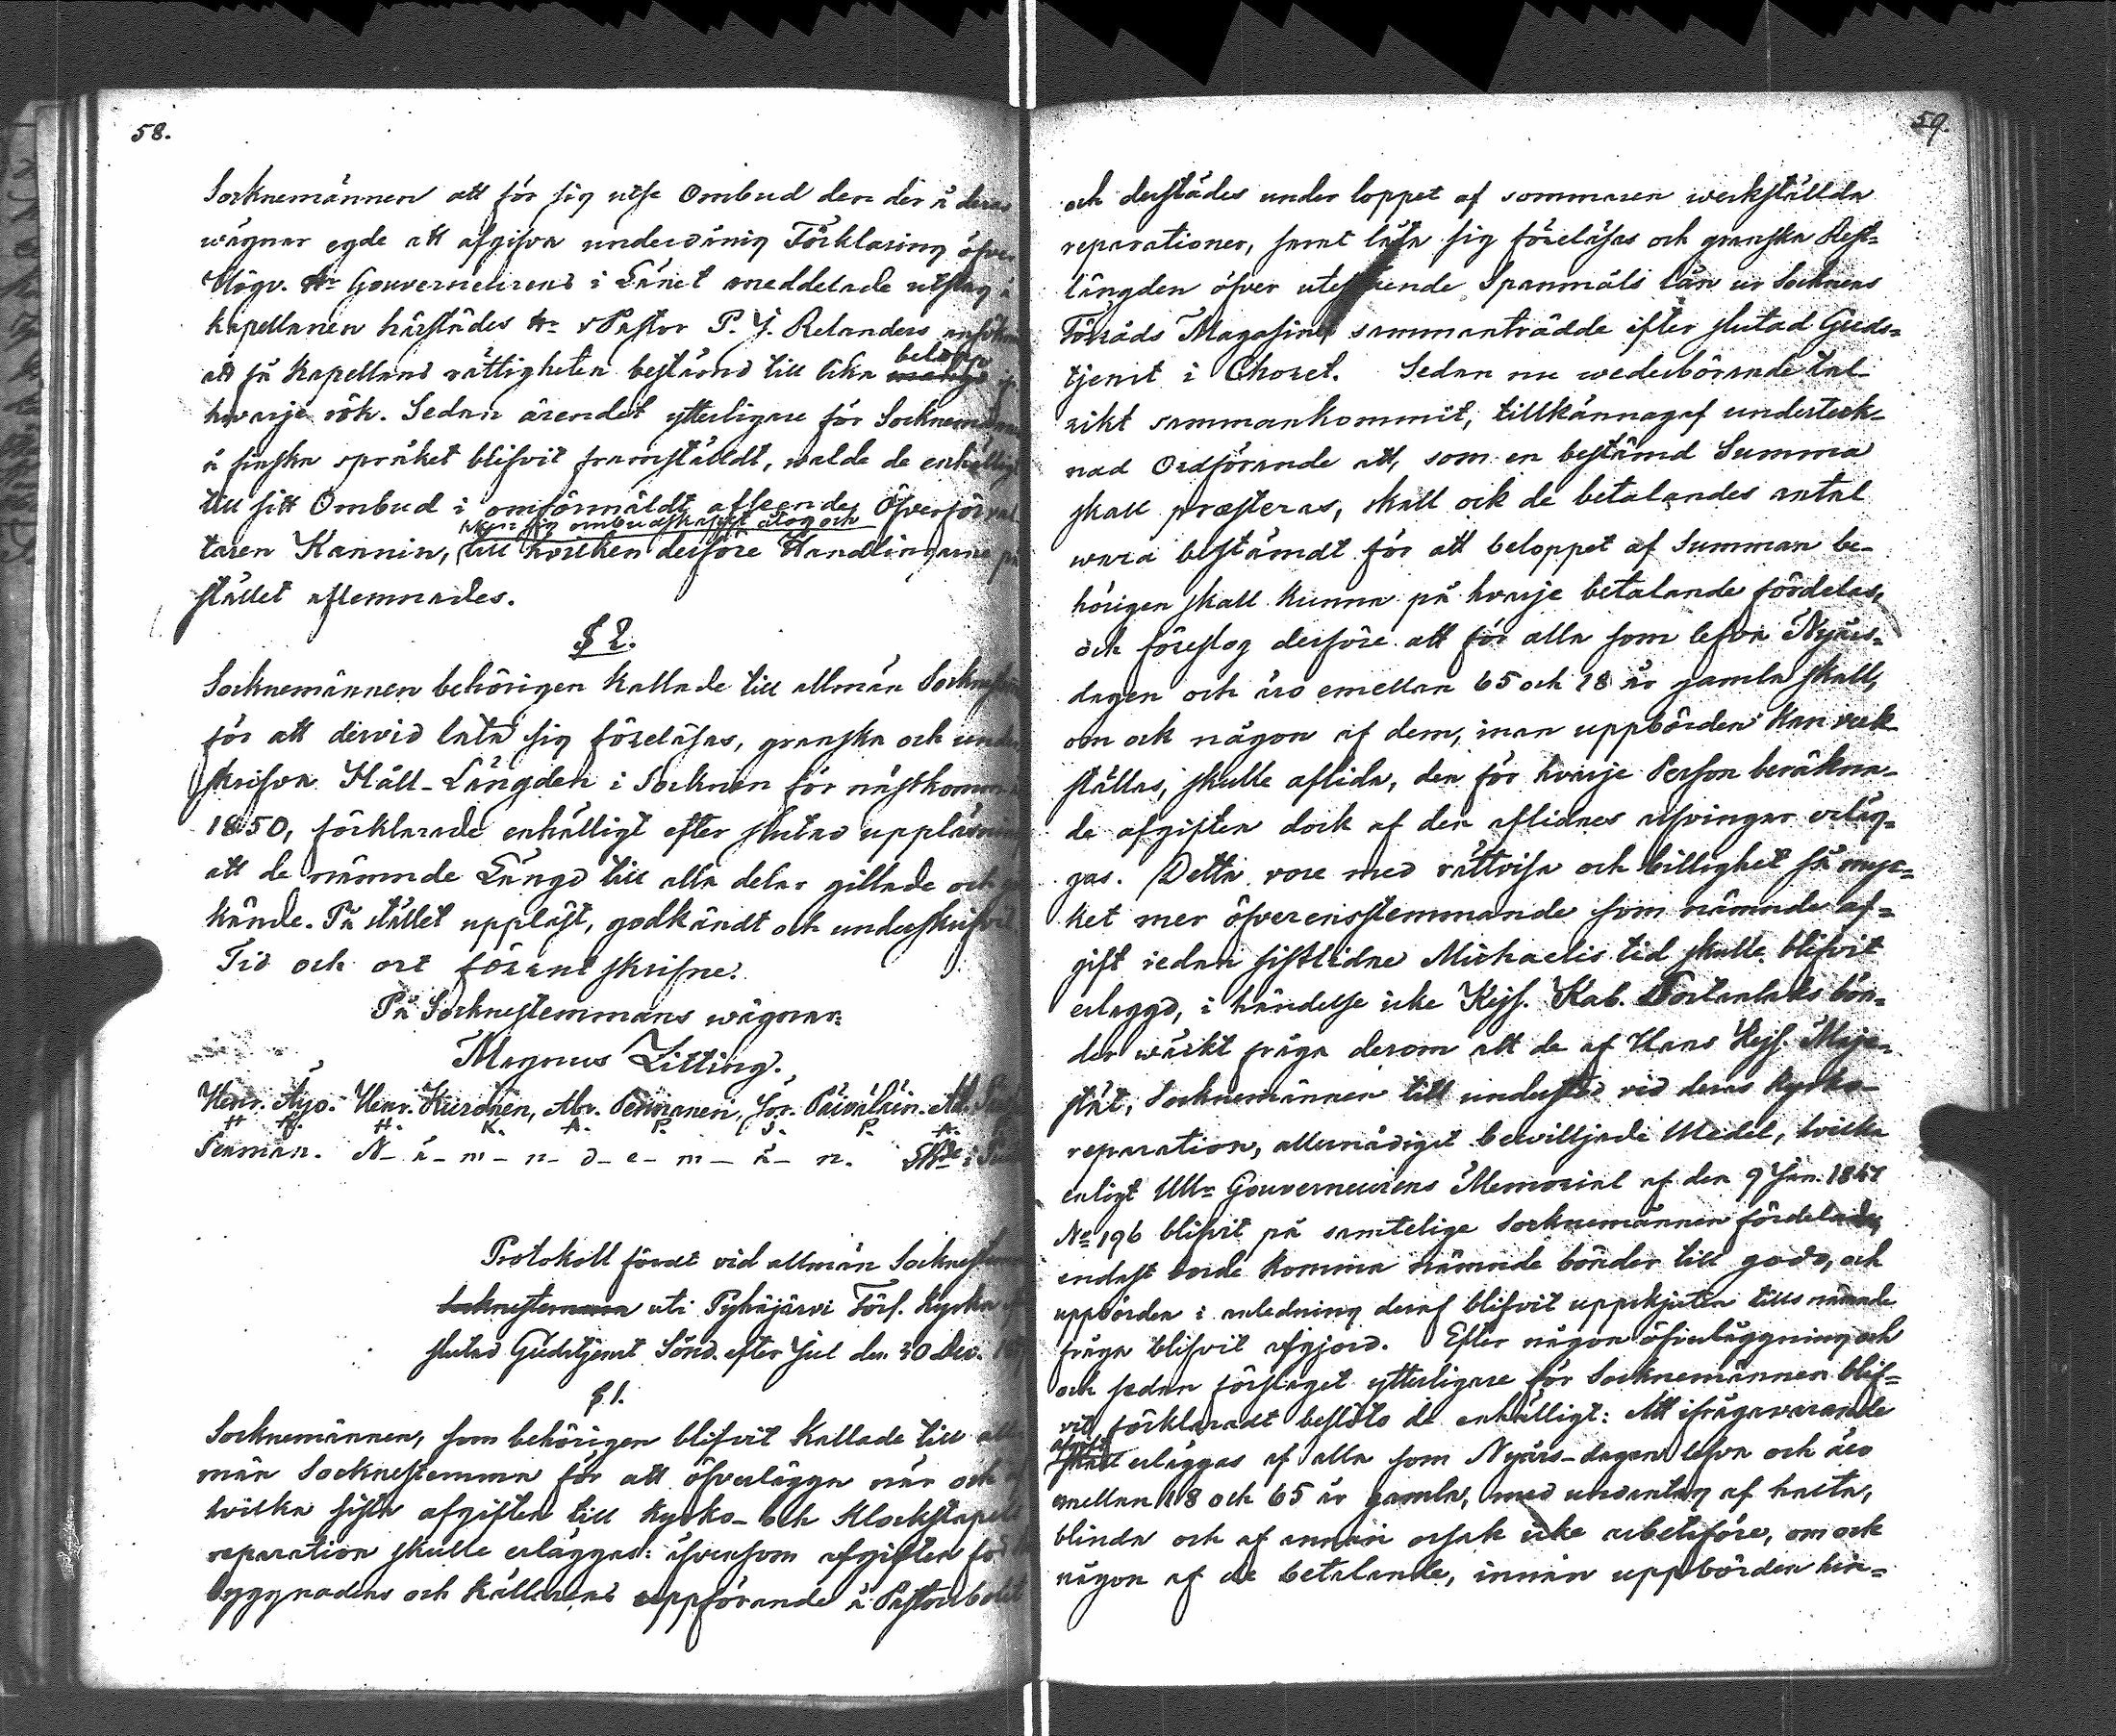 58.
Socknemännen att för sig utse Ombud den der å deras
wägnar egde att afgifva underdånig Förklaring öfver
Högv. Hr Gouverneurens i Länet meddelade utslag å
Kapellanen härstädes Hr v Pastor P. J. Relanders ansökan
att få Kapellans rättigheten bestämd till lika belopp
hvarje rök. Sedan ärendet ytterligare för Socknemännen
å finska språket blifvit framstäldt, walde de enhälligt
till sitt Ombud i omförmäldt afseende Öfverförval
hvilken sig ombudskapet åtog och
taren Kannin, till hvilken derföre Handlingarna på
stället aflemnades.
§ 2.
Socknemännen behörigen kallade till allmän Sockne
för att dervid låta sig föreläsas, granska och under
skrifva Håll-Längden i Socknen för nästkomm
1850, förklarade enhälligt efter slutad uppläsning
att de nämnde Längd till alla delar gillade och
kände. På stället uppläst, godkändt och underskrifvit
Tid och ort förent skrifne.
På Socknestemmans wägnar:
Magnus Litting.
Henr. Äijö. Henr. Kuronen, Abr. Penmanen, Jör. Päiväläin. Ad.
H Ä. H. K. A. P. J. P. A.
Penman. N-ä-m-n-d-e-m-ä-n.
Protokoll fördt vid allmän Socknestemma
socknestemma uti Pyhäjärvi Förs. Kyrka
slutad Gudstjenst Sönd. efter Jul den 30 Dec.
§ 1.
Socknemännen, som behörigen blifvit kallade till all
män Socknestemma för att öfverlägga när och
hvilka sista afgiften till Kyrko- och Klockstapels
reparation skulle erläggas: äfvensom afgiften för
byggnadens och källarens uppförande å Pastorbolet
59.
och derstädes under loppet af sommaren werkställda
reparationer, samt låta sig föreläsas och granska Rest=
längden öfver utestående Spanmåls lån ur Socknens
Förråds Magasiner sammanträdde efter slutad Guds=
tjenst i Choret. Sedan nu wederbörande tal-
rikt sammankommit, tillkännagaf underteck-
nad Ordförande att, som en bestämd Summa
skall præsteras, skall ock de betalandes antal
wara bestämdt för att beloppet af Summan be-
hörigen skall kunna på hvarje betalande fördelas,
och föreslog derföre att för alla som lefva Nyårs-
dagen och äro emellan 65 och 18 år gamla skall,
om ock någon af dem, innan uppbörden kan verk-
ställas, skulle aflida, den för hvarje Person beräkna-
de afgiften dock af den aflidnes arfvingar erläg-
gas. Detta vore med rättvisa och billighet så myc-
ket mer öfverensstemmande som nämnde af=
gift redan sistlidne Michaelis tid skulle blifvit
erlaggd, i händelse icke Kejs. Kab. bön-
der wäckt fråga derom att de af Hans Kejs. Maje-
stät, Socknemännen till understöd vid deras Kyrko-
reparation, allernådigst bewilljade Medel, hvilka
enligt Gouverneurens Memorial af den 9 Jan. 1847
No 196 blifvit på samtelige Socknemännen fördelade,
endast borde komma nämnde bönder till godo, och
uppbörden i anledning deraf blifvit uppskjuten tills nämnde
fråga blifvit afgjord. Efter någon öfverläggning och
och sedan förslaget ytterligare för Socknemännen blif=
vit förklaradt beslöto de enhälligt: Att ifrågavarande
afgift
skall erläggas af alla som Nyårs-dagen lefva och äro
emellan 18 och 65 år gamla, med undantag af halta,
blinda och af annan orsak icke arbetsföre, om ock
någon af de betalande, innan uppbörden hin=